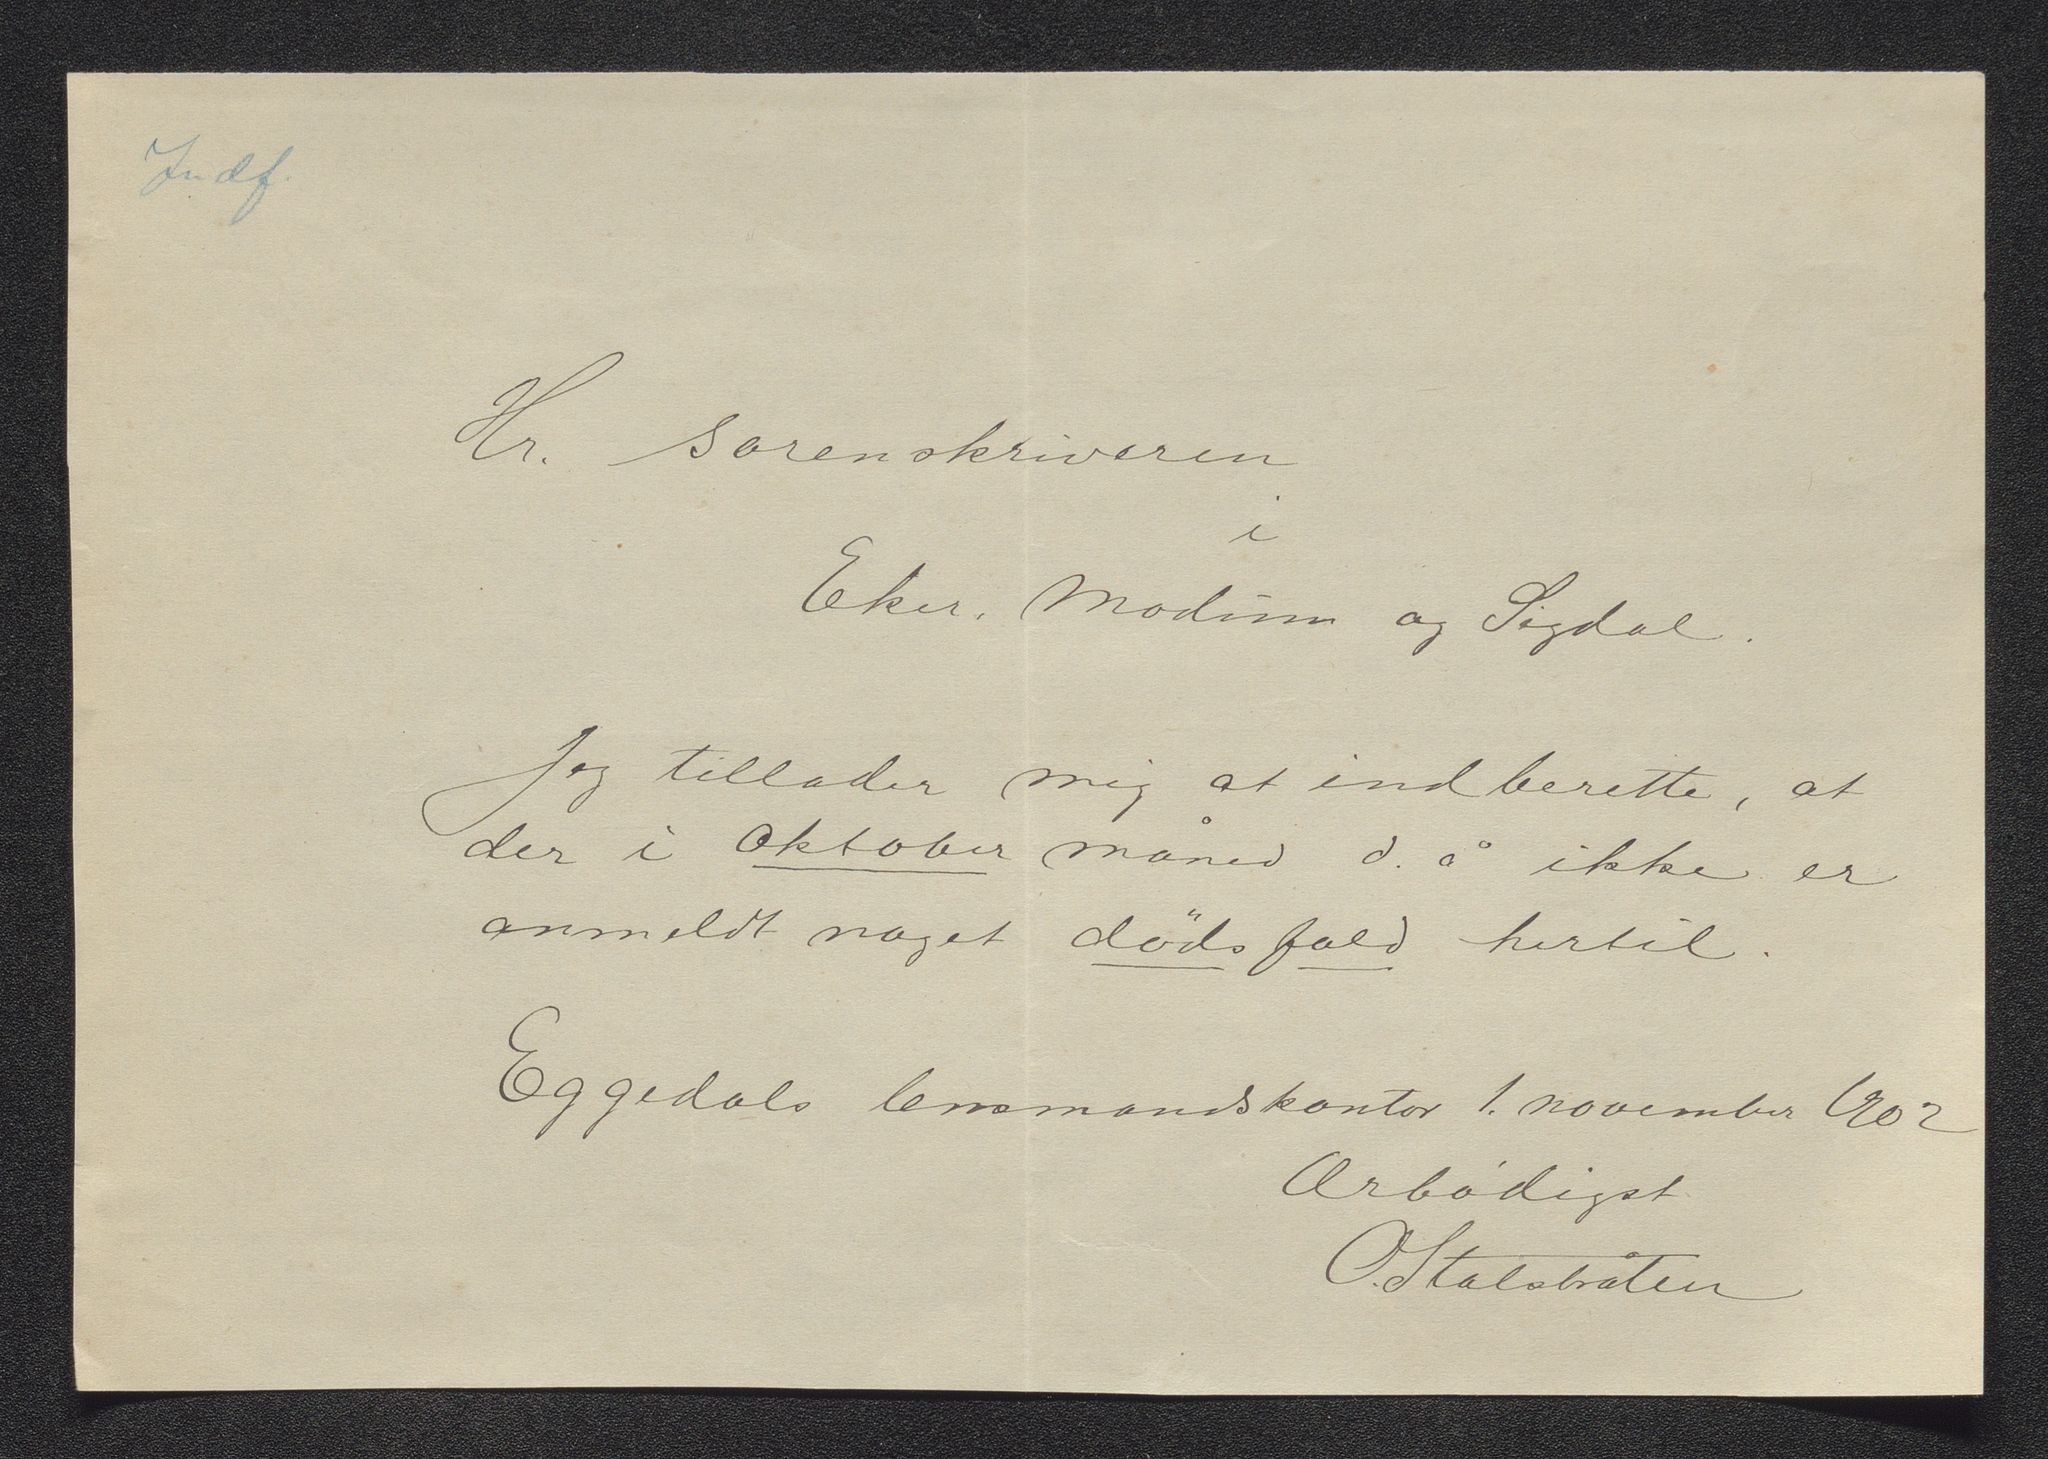 Indf.
Hr. sorenskriveren
i
Eker, Modum og Sigdal.
Jeg tillader mig at indberette, at
der i oktober måned d. å ikke er
anmeldt noget dödsfald hertil.
Eggedals lensmandskontor 1. november 1902
Ærbödigst
O. Stalsbråten